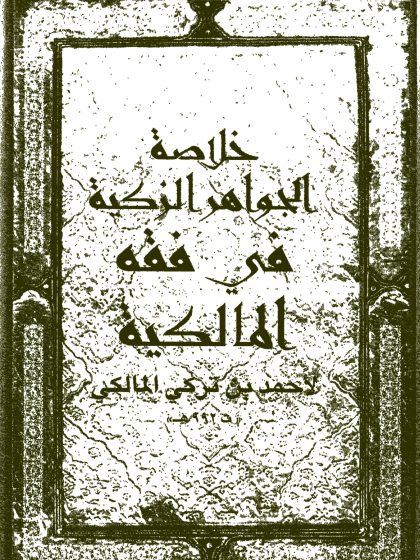 خلاصة
الجواهر الزكية
في فقه
المالكية
لاحمد بن تركي المالكي